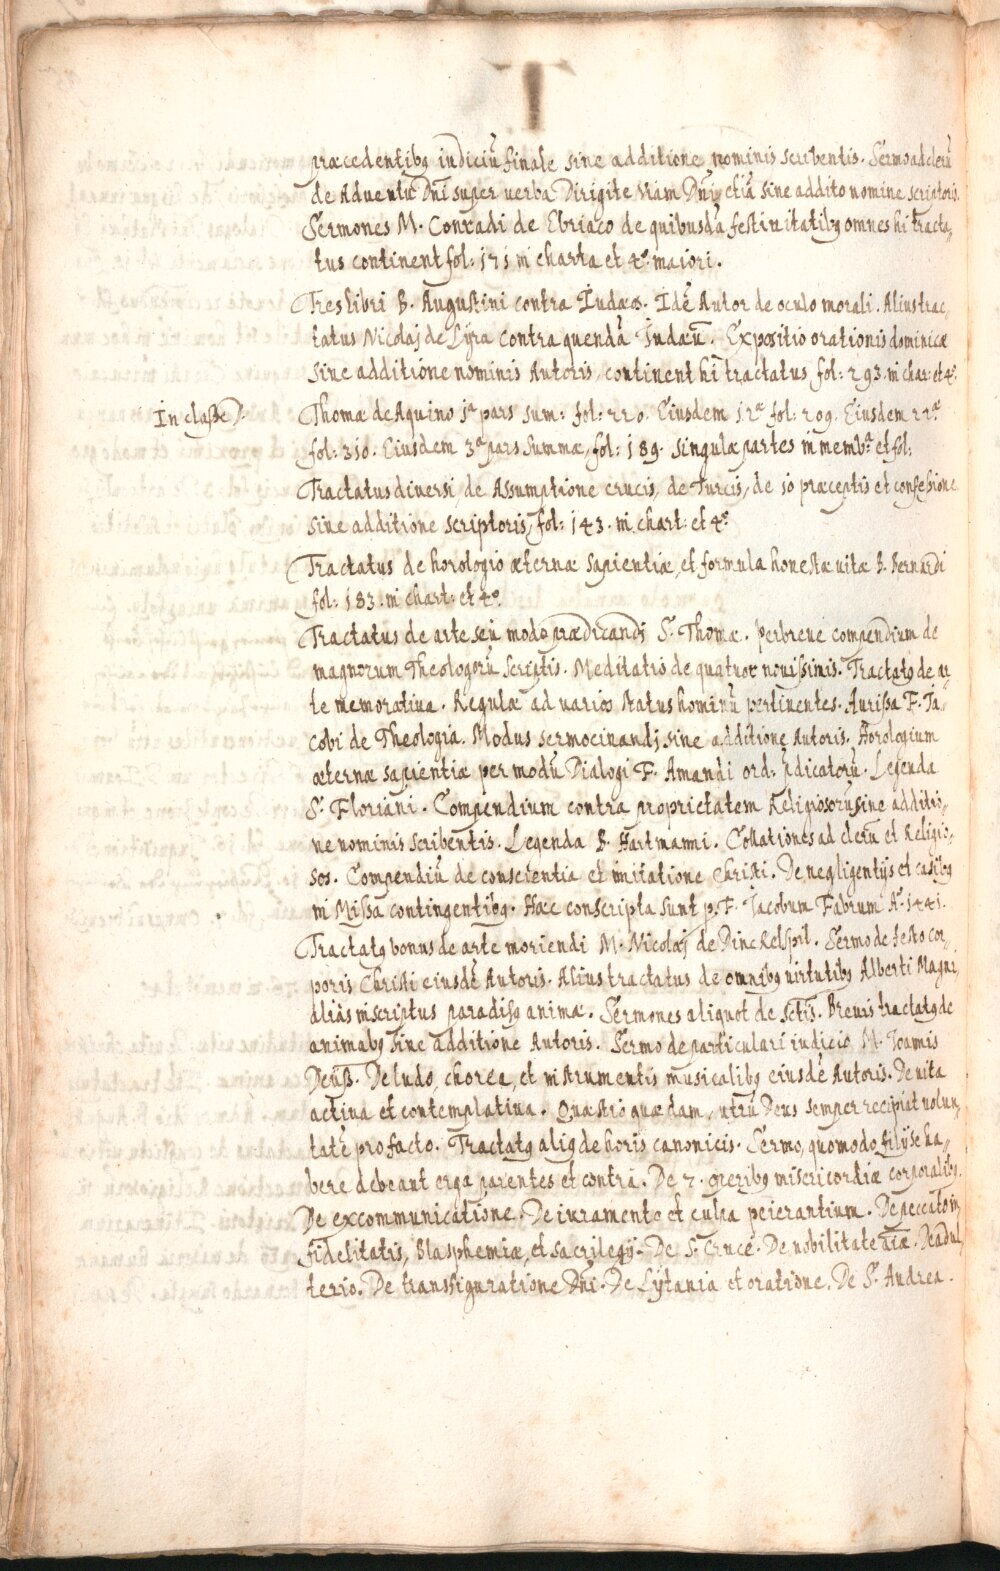 T
præcedentibꝫ iudiciũ finale sine additione nominis scribentis. Sermo ad clerũ
de Adventu Dñi super verba Dirigite viam Dñi, etiã sine addito nomine scriptoris.
Sermones M. Conradi de Ebraco de quibusdã festivitatibꝫ omnes hi tracta„
tus continent fol: 171 in charta et 4º maiori.
Tres libri B. Augustini contra Iudæos. Idẽ Autor de oculo morali. Alius trac„
tatus Nicolaj de Lÿra contra quendã Iudæũ. Expositio orationis dominicæ
sine additione nominis Autoris, continent hi tractatus fol: 293. in char: et 4º.
In classe J. Thomæ de Aquino 1ª pars sum: fol: 220. Eiusdem 12ª fol: 209. Eiusdem 22ª
fol: 310. Eiusdem 3ª pars Summæ, fol: 189. singulæ partes in memb: et fol:
Tractatus diversi de Assumptione crucis, de Turcis, de 10 præceptis et confessione
sine additione scriptoris, fol: 143. in chart: et 4º
Tractatus de horologio æternæ sapientiæ, et formula honestæ vitæ B. Bernardi
fol: 183. in chart: et 4º.
Tractatus de arte seu modo prædicandi S. Thomæ. perbreve compendium de
magnorum Theologorũ scriptis. Meditatio de quatuor novissimis. Tractatꝰ de ar„
te memorativa. Regulæ ad varios status hominũ pertinentes. Aurissa F. Ja„
cobi de Theologia. Modus sermocinandj sine additione Autoris. Horologium
æternæ sapientiæ per modũ Dialogi F. Amandi ord: p̃dicatorũ. Legenda
S. Floriani. Compendium contra proprietatem Religiosorũ sine additio„
ne nominis scribentis. Legenda B. Hartmanni. Collationes ad clerũ et Religio„
sos. Compendiũ de conscientia et imitatione Christi. De negligentijs et casibꝫ
in Missa contingentibꝫ. Hæc conscripta sunt p. F. Jacobum Fabrum Aº 1441.
Tractatꝰ bonus de arte moriendi M. Nicolaj de Dinckelspil. Sermo de festo cor„
poris Christi eiusdẽ Autoris. Alius tractatus de omnibꝫ virtutibꝫ Alberti Magni,
aliàs inscriptus paradisꝰ animæ. Sermones aliquot de Sctis. Brevis tractatꝰ de
animabꝫ sine additione Autoris. Sermo de particulari iudicio M. Ioannis
De ludo, chorea, et instrumentis musicalibꝫ eiusdẽ Autoris. De vita
activa et contemplativa. Quæstio quædam, utrũ Deus semper recipiat volun„
tatẽ pro facto. Tractatꝰ aliqꝰ de horis canonicis. Sermo, quomodo filij se ha„
bere debeant erga parentes et contra. De 7. operibꝫ misericordiæ corporalibꝫ.
De excommunicatione. De iuramento et culpa peierantium. De peccato in„
fidelitatis, Blasphemiæ, et sacrilegij. De S. Cruce. De nobilitate De adul„
terio. De transfiguratione Dñi. De Lÿtania et oratione. De S. Andrea.